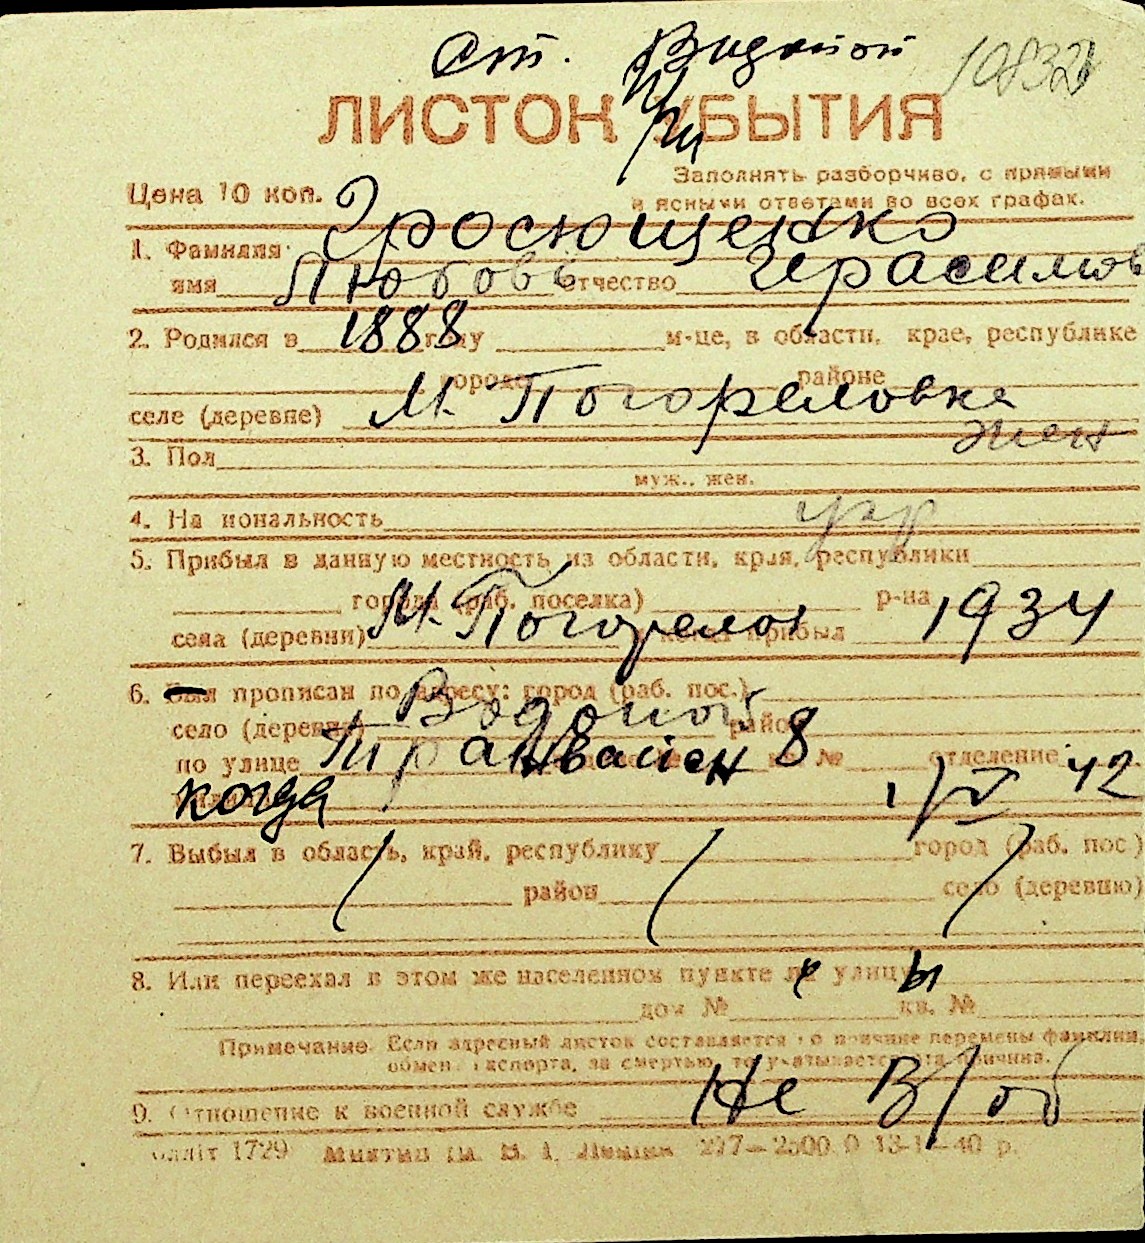 ст. Водяной
10832
ЛИСТОК УБЫТИЯ
Цена 10 коп.
Заполнять разборчиво, с прямыми
и ясными ответами во всех графах.
1. Фамилия Гросющенко
имя Любовь отчество Герасимов
2. Родился в 1888 году м-це, в области, крае, республике
городе районе
селе (деревне) М. Погореловке
3. Пол жен
муж., жен.
4. Национальность укр
5. Прибыл в данную местность из области, края, республики
города (раб. поселка) р-на
села (деревни) М. Погорелов когда прибыл 1934
6. Был прописан по адресу: город (раб. пос.)
село (деревня) Водяной район
по улице Трамвайен 8 кв. № отделение
когда 1/IV 42
7. Выбыл в область, край, республику город (раб. пос.)
район село (деревню)
8. Или переехал в этом же населенном пункте на улицы
дом № кв. №
Примечание. Если адресный листок составляется по причине перемены фамилии,
обмен. паспорта, за смертью, то указывается эта причина.
9. Отношение к военной службе Не в/об
1729 227—2500 0 13-1—40 р.